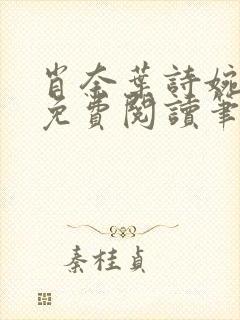 肖奈葉詩婉
免費閱讀筆
秦桂貞